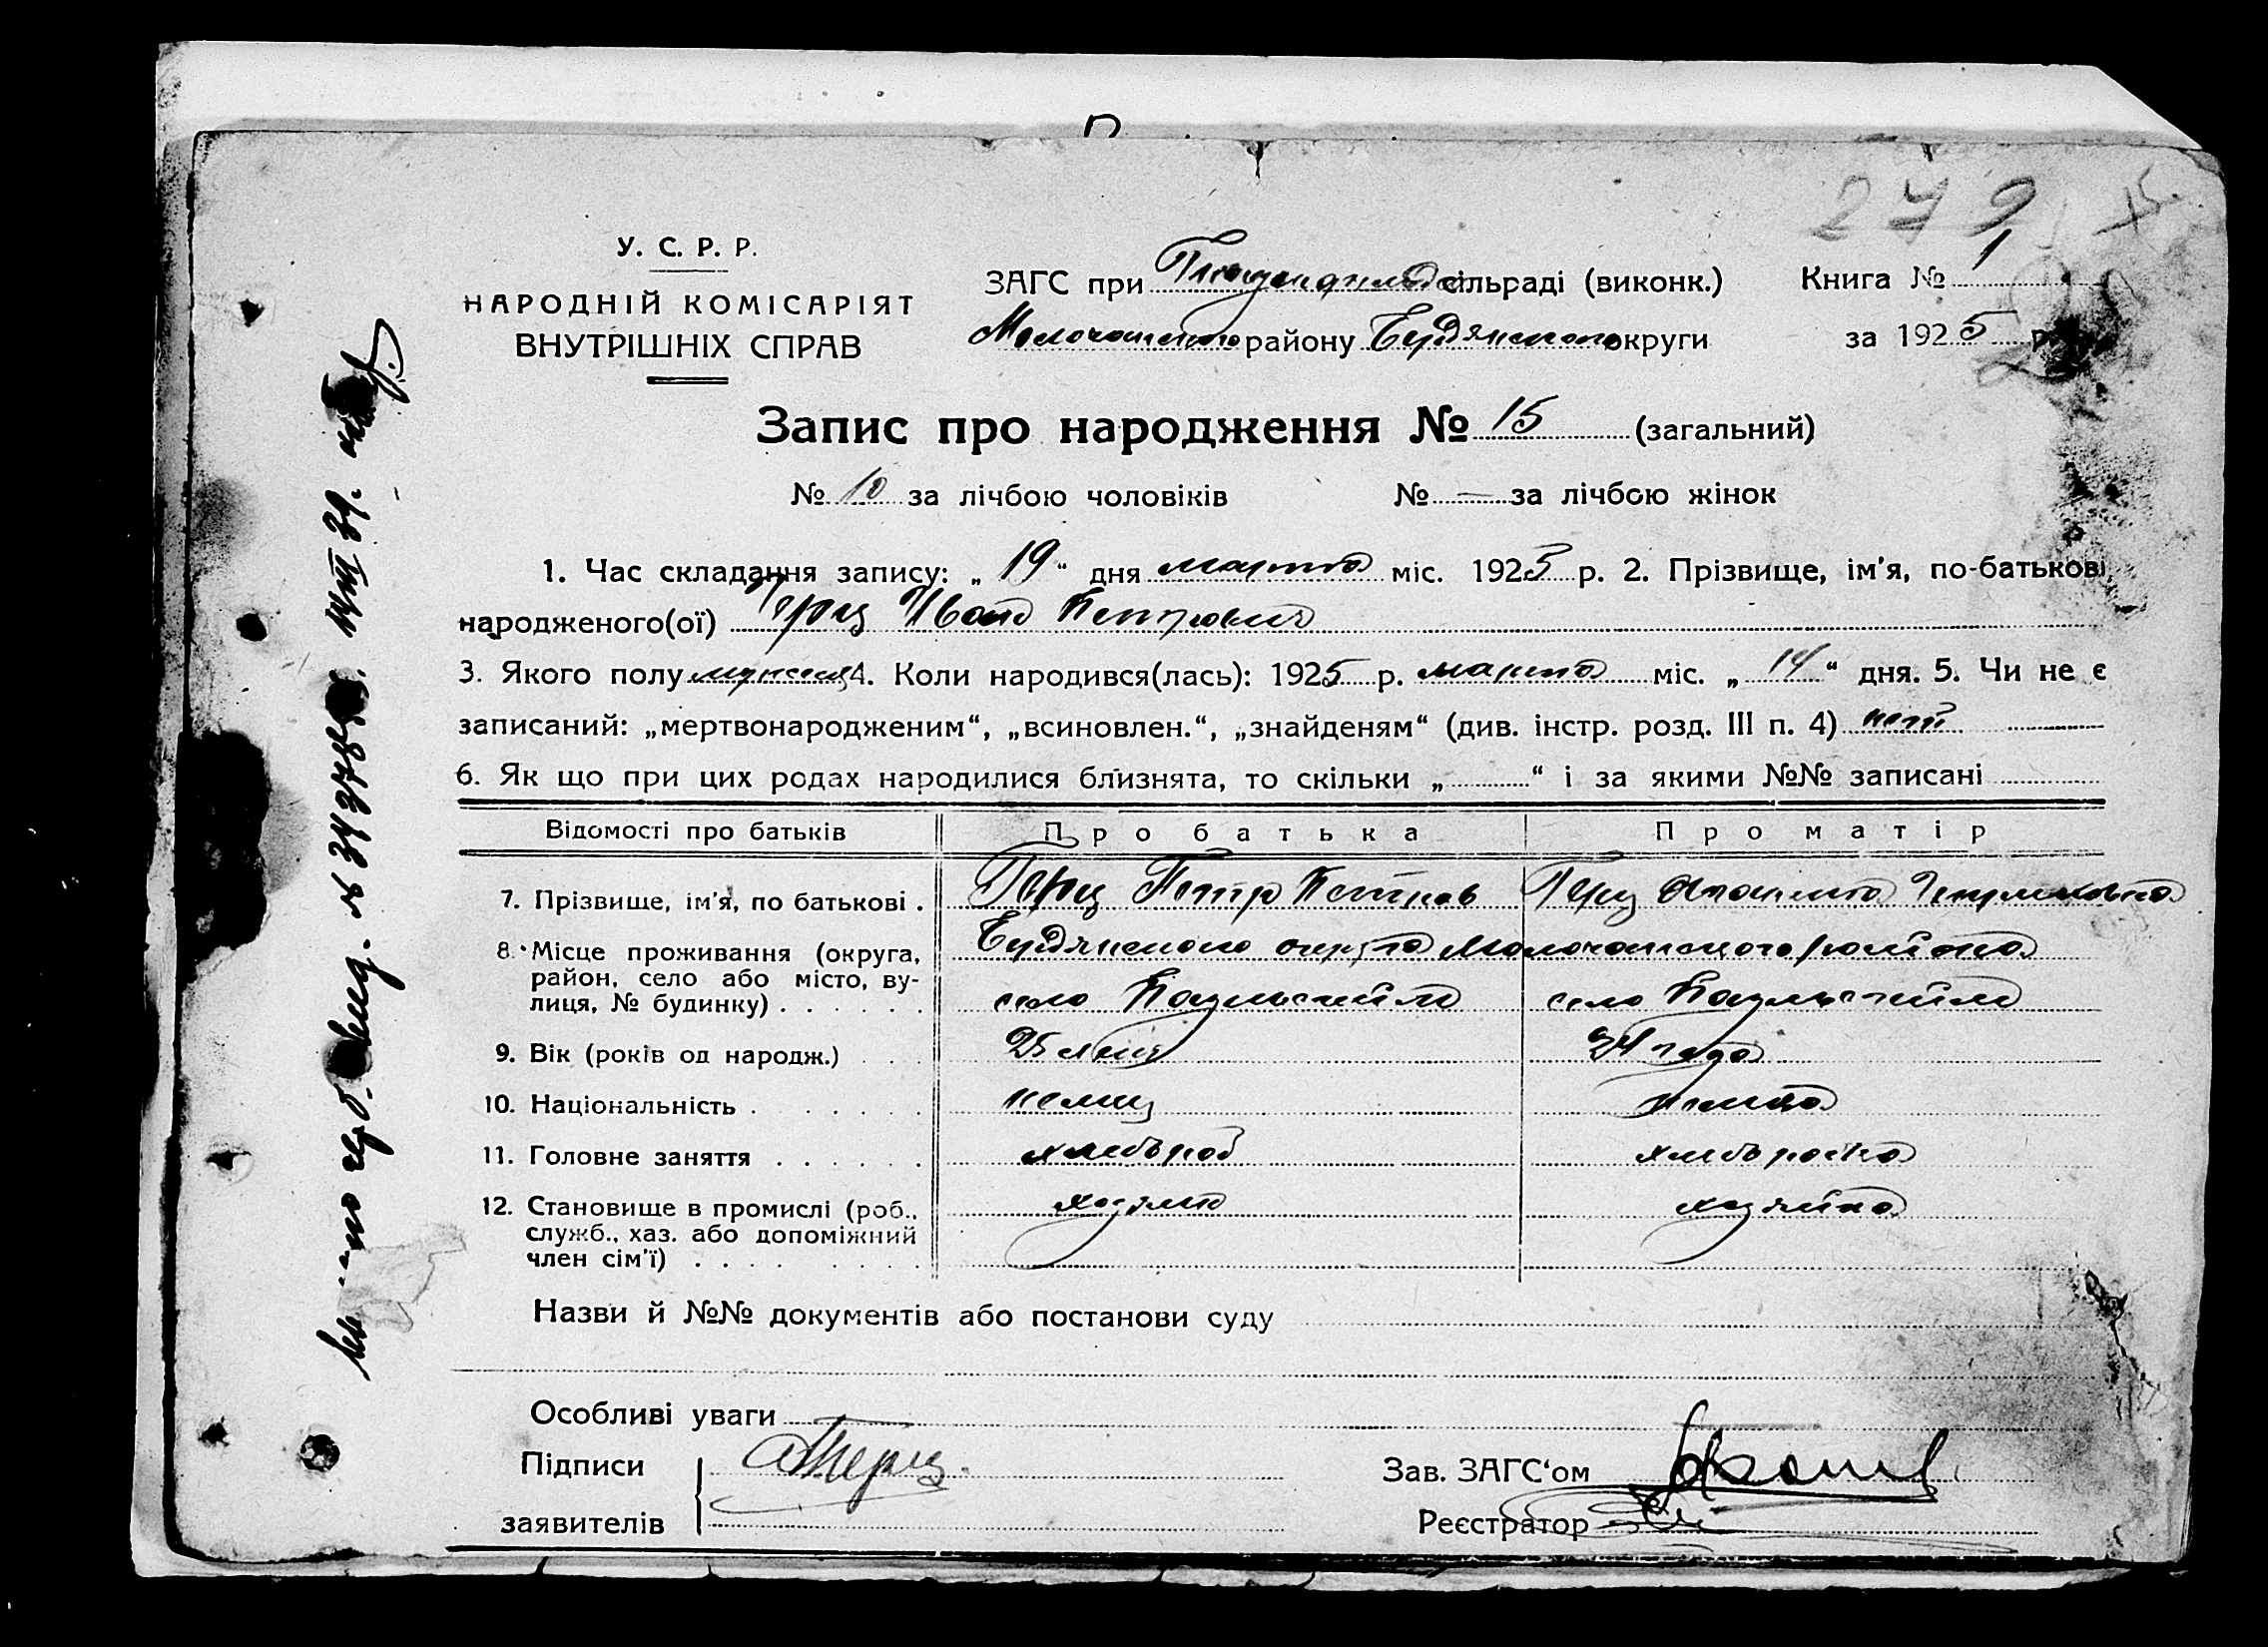 279
У. С. Р. Р.
НАРОДНІЙ КОМІСАРІЯТ
ВНУТРІШНІХ СПРАВ
ЗАГС при сільраді (виконк.)
Книга № 1
району Бердянского округи
за 1925 р.
Запис про народження № 15 (загальний)
№ 10 за лічбою чоловіків № — за лічбою жінок
1. Час складання запису: „ 19 “ дня марта міс. 1925 р. 2. Прізвище, ім'я, по-батькові
народженого(ої) Герц Иван Петрович
3. Якого полу 4. Коли народився(лась): 1925 р. марта міс. „ 14 “ дня. 5. Чи не є
записаний: „мертвонародженим“, „всиновлен.“, „знайденям“ (див. інстр. розд. III п. 4) нет
6. Як що при цих родах народилися близнята, то скільки „ “ і за якими №№ записані
Відомості про батьків Про батька Про матір
7. Прізвище, ім'я, по батькові . Герц Петр Петров Герц
8. Місце проживання (округа, район, село або місто, вулиця, № будинку) . . . . . . Бердянского округа Молочанского района
село Паульсгейм село Паульсгейм
9. Вік (років од народж.) . . 25 лет 24 года
10. Національність . . . . . . немец немка
11. Головне заняття . . . . . . хлебороб хлеборобка
12. Становище в промислі (роб., служб., хаз. або допоміжний член сім'ї) . . . . . . . . хозяин хозяйка
Назви й №№ документів або постанови суду
Особливі уваги
Підписи
заявителів
Зав. ЗАГС‘ом
Реєстратор